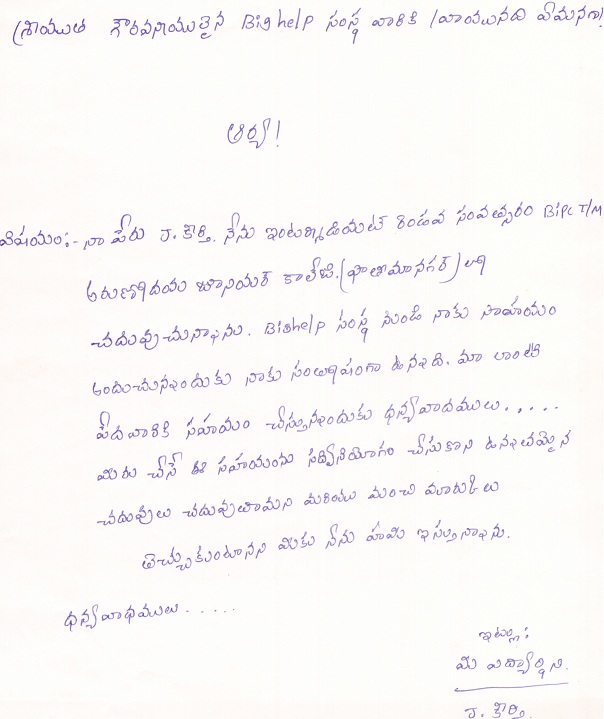 శ్రీయుత గౌరవనీయులైన Bighelp సంస్థ వారికి వ్రాయునది ఏమనగా!
ఆర్యా!
విషయం:- నా పేరు J. కీర్తి. నేను ఇంటర్మీడియట్ రెండవ సంవత్సరం BiPC T/M
అరుణోదయ జూనియర్ కాలేజి.(ఫాతిమానగర్) లో
చదువుచున్నాను. Bighelp సంస్థ నుండి నాకు సాహయం
అందుచున్నందుకు నాకు సంతోషంగా ఉన్నది. మా లాంటి
పేదవారికి సహయం చేస్తున్నందుకు ధన్యవాదములు......
మీరు చేసే ఈ సహయంను సద్వినియోగం చేసుకొని ఉన్నతమైన
చదువులు చదువుతామని మరియు మంచి మారుక్‌లు
తెచ్చుకుంటానని మీకు నేను హామి ఇస్తున్నాను.
ధన్యవాధములు.....
ఇట్లు:
మీ విద్యార్థిని.
J. కీర్తి.